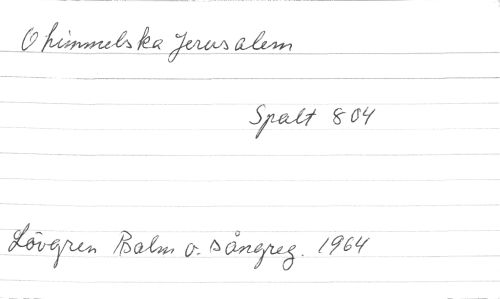 O himmelska Jerusalem
Spalt 804
Lövgren Psalm o. sångreg. 1964